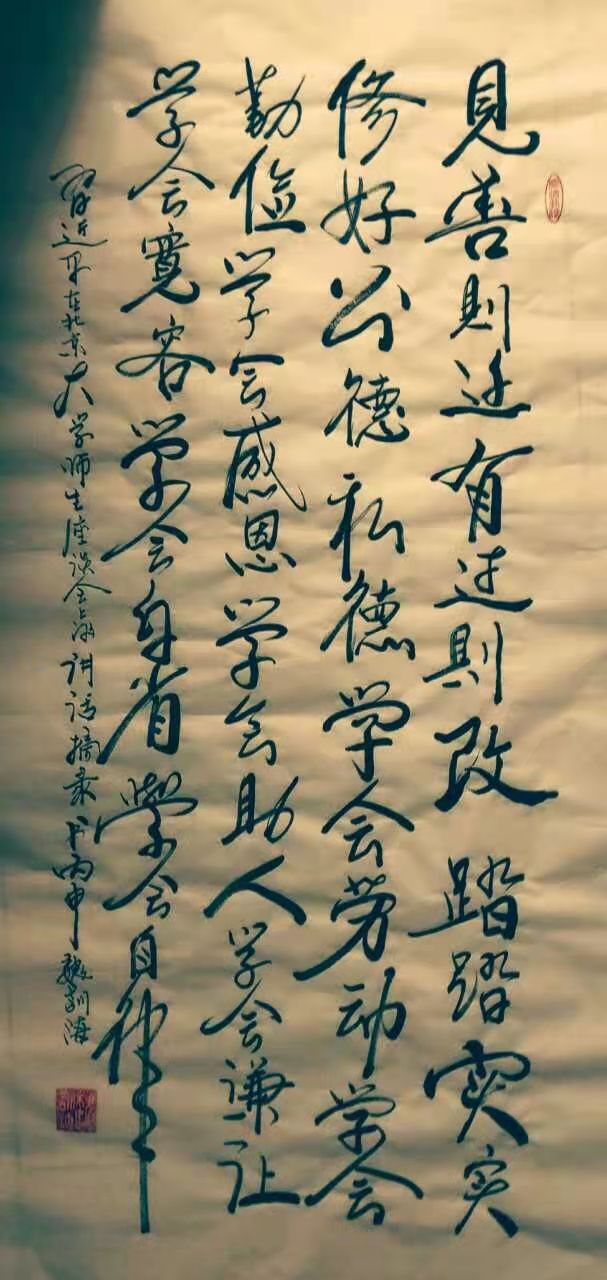 見善则迁有过则改踏踏实实
修好公德私德学会劳动学会
勤俭学会感恩学会助人学会謙让
学会寛容学会自省學会自律
习近平在北京大学师生座谈会上的讲话摘录 丙申